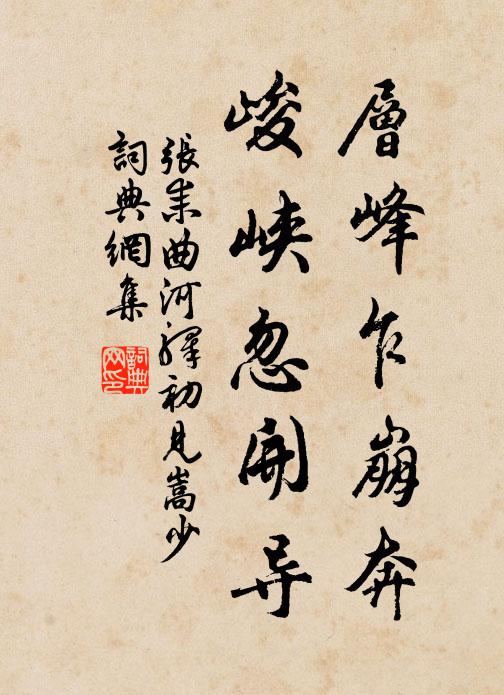 層峰乍崩奔
峻峽忽開导
張耒曲河驛初見嵩少
詞典網集
詞典網印